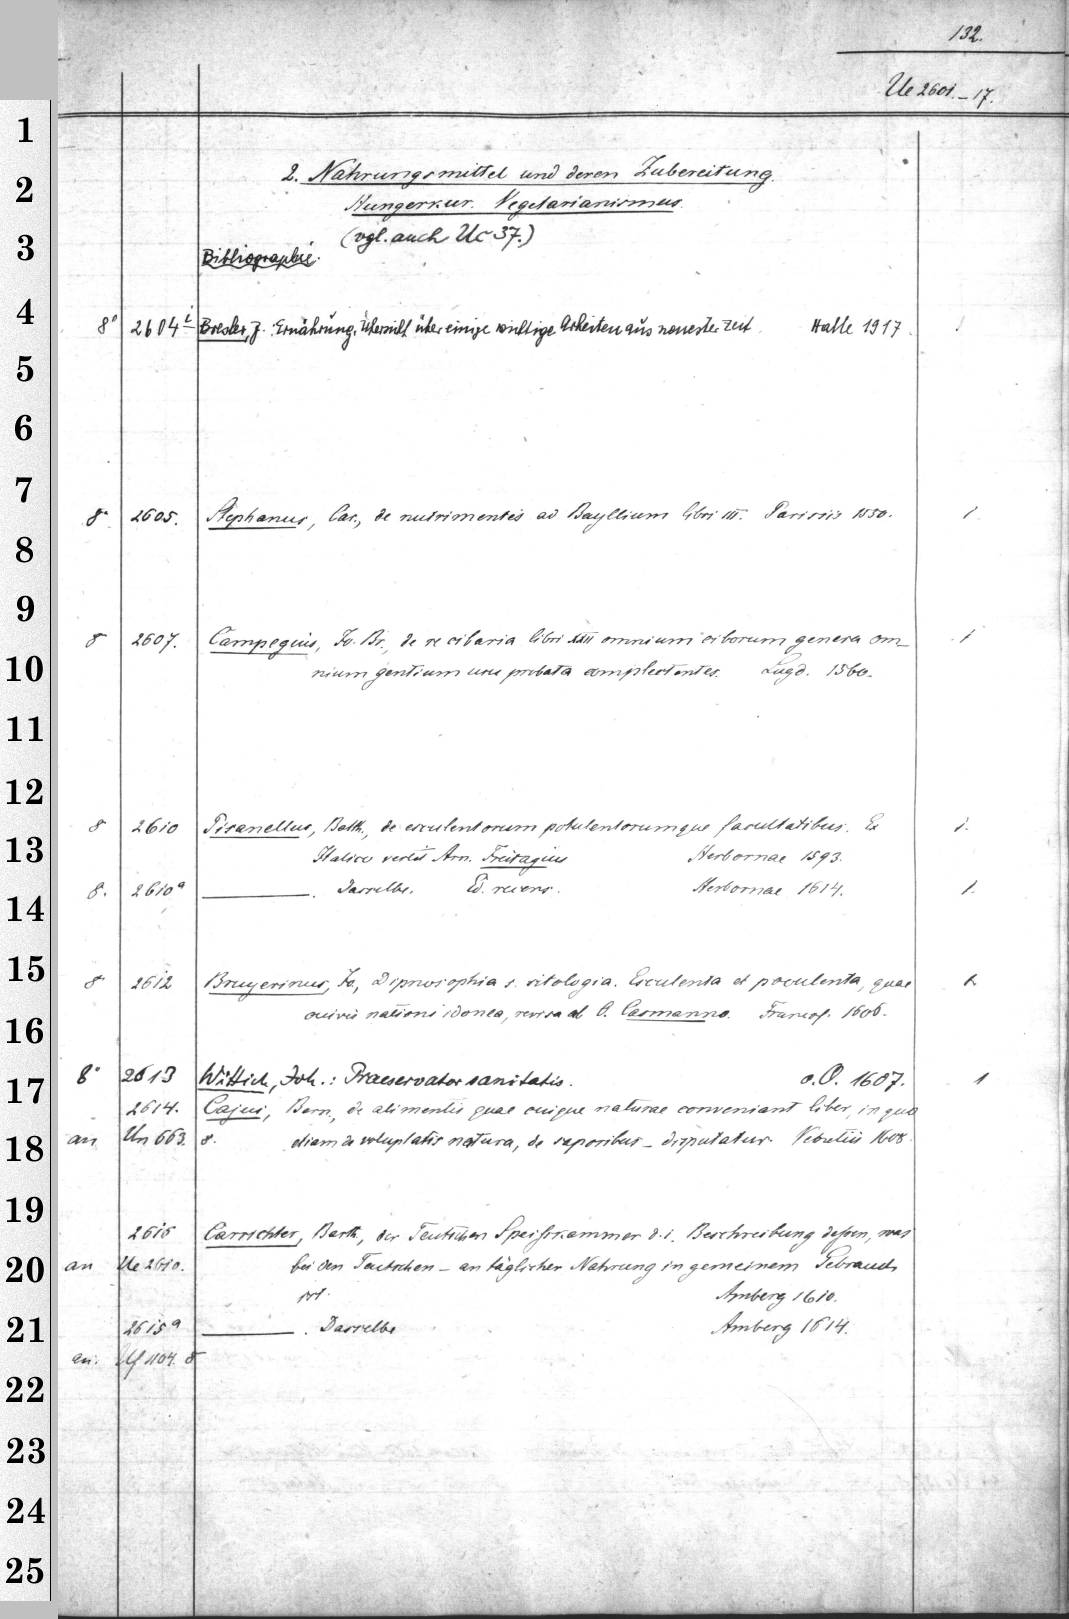 132.
Ue 2601.-17.
1
2
3
4
5
6
7
8
9
10
11
12
13
14
15
16
17
18
19
20
21
22
23
24
25
2. Nahrungsmittel und deren Zubereitung.
Hungerkur. Vegetarianismus.
(vgl. auch Uc 37.)
Bibliographie.
8° 2604 i Bresler, J. Ernährung. Übersicht über einige wichtige Arbeiten aus neuester Zeit. Halle 1917.
8° 2605. Stephanus, Car., de nutrimentis ad Bayllium libri III. Parisiis 1550. 1
8 2607. Campegius, Jo. Br., de re cibaria libri XXII omnium ciborum genera om-
nium gentium usu probata complectentes. Lugd. 1560. 1
8 2610 Pisanellus, Balth., de esculentorum potulentorumque facultatibus. Ex 1.
Italico vertit Arn. Freitagius Herbornae 1593.
8. 2610a ———. Dasselbe. Ed. recens. Herbornae 1614. 1.
8 2612 Bruyerinus, Jo., Dipnosophia s. sitologia. Esculenta et poculenta, quae
cuivis nationi idonea, revisa ab O. Casmanno. Francof. 1606.
8° 2613 Wittich, Joh.: Praeservator sanitatis. o.O. 1607. 1
2614. Cajus, Bern., de alimentis quae cuique naturae conveniant liber, in quo
an Un 663. 8. etiam de voluptatis natura, de saporibus - disputatur. Venetiis 1608.
2615 Carrichter, Barth., der Teutschen Speißkammer d. i. Beschreibung dessen, was
an Ue 2610. bei den Teutschen - an täglicher Nahrung in gemeinem Gebrauch
ist. Amberg 1610.
2615a ———. Dasselbe Amberg 1614.
an. Uf 1104. 8